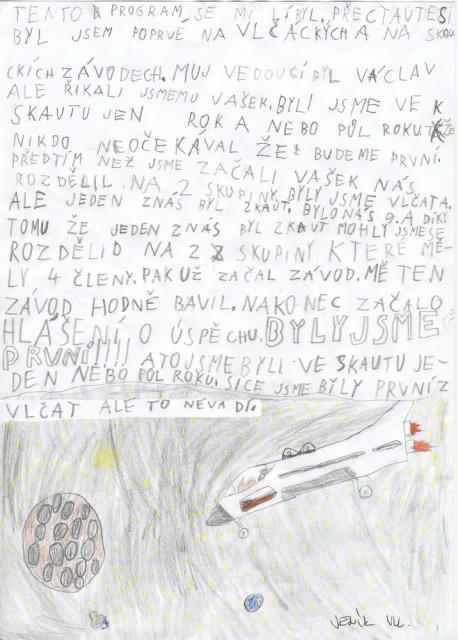 TENTO PROGRAM SE MI LÍBYL. PŘEČTAUTE SI
BYL JSEM POPRVÉ NA VLČÁCKÝCH A NA SKAU
CKÍCH ZÁVODECH. MUJ VEDOUČÍ BYL VÁCLAV
ALE ŘÍKALI JSMEMU VAŠEK. BYLI JSME VE
SKAUTU JEN ROK A NEBO PŮL ROKU
NIKDO NEOČEKÁVAL ŽE BUDEME PRVNÍ.
PŘEDTÍM NEŽ JSME ZAČALI VAŠEK NÁS
ROZDĚLIL NA 2 SKUPINY. BYLY JSME VLČATA.
ALE JEDEN ZNÁS BYL ZKAUT. BYLO NÁS 9. A DÍKY
TOMU ŽE JEDEN ZNÁS BYL ZKAUT MOHLY JSME SE
ROZDĚLID NA 2 SKUPINY KTERÉ MĚ-
LY 4 ČLENY. PAK UŽ ZAČAL ZÁVOD. MĚ TEN
ZÁVOD HODNĚ BAVIL. NAKONEC ZAČALO
HLÁŠENÍ O ÚSPĚCHU. BYLY JSME
PRVNÍ!!!! A TO JSME BYLI VE SKAUTU JE-
DEN NEBO PŮL ROKU. SICE JSME BYLY PRVNÍ Z
VLČAT ALE TO NEVADÍ.
JENÍK VLK.